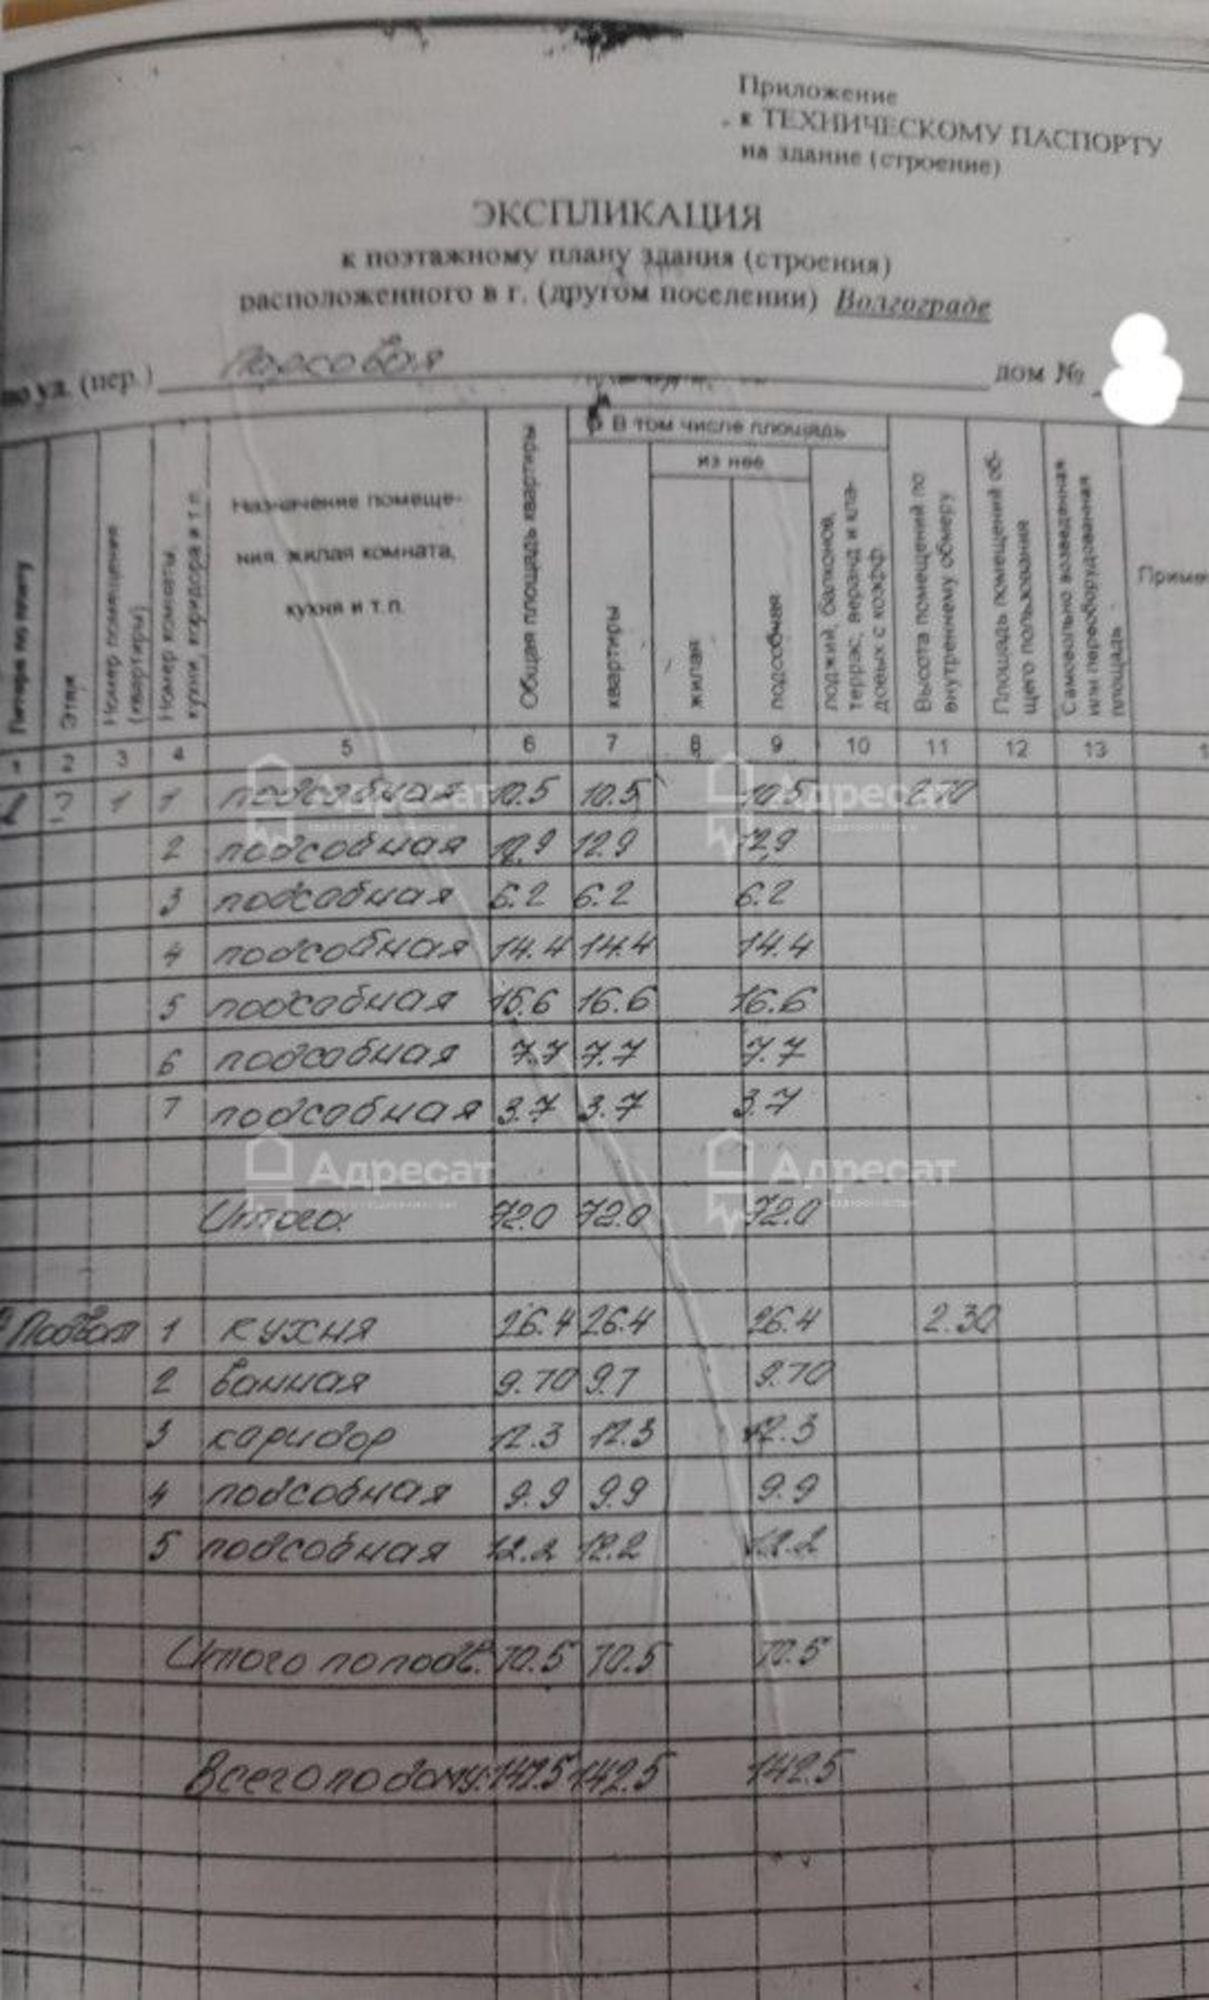 Приложение
к ТЕХНИЧЕСКОМУ ПАСПОРТУ
на здание (строение)
ЭКСПЛИКАЦИЯ
к поэтажному плану здания (строения)
расположенного в г. (другом поселении) Волгограде
по ул. (пер.) дом №
Литера по плану
Этаж
Номер помещения (квартиры)
Номер комнаты, кухни, коридора и т.п.
Назначение помеще-
ния: жилая комната,
кухня и т.п.
Общая площадь квартиры
В том числе площадь
из нее
квартиры
жилая
подсобная
лоджий, балконов, террас, веранд и кла-довых с коэфф.
Высота помещений по внутреннему обмеру
Площадь помещений об-щего пользования
Самовольно возведенная или переоборудованная площадь
Приме
1 2 3 4 5 6 7 8 9 10 11 12 13 1
1 1 подсобная 10.5 10.5 10.5 2.70
2 подсобная 12.9 12.9 12.9
3 подсобная 6.2 6.2 6.2
4 подсобная 14.4 14.4 14.4
5 подсобная 16.6 16.6 16.6
6 подсобная 7.7 7.7 7.7
7 подсобная 3.7 3.7 3.7
Итого: 72.0 72.0 72.0
Подвал 1 кухня 26.4 26.4 26.4 2.30
2 ванная 9.70 9.7 9.70
3 каридор 12.3 12.3 12.3
4 подсобная 9.9 9.9 9.9
5 подсобная 12.2 12.2 12.2
Итого по подв. 70.5 70.5 70.5
Всего по дому: 142.5 142.5 142.5
Адресат
Адресат
Адресат
Адресат